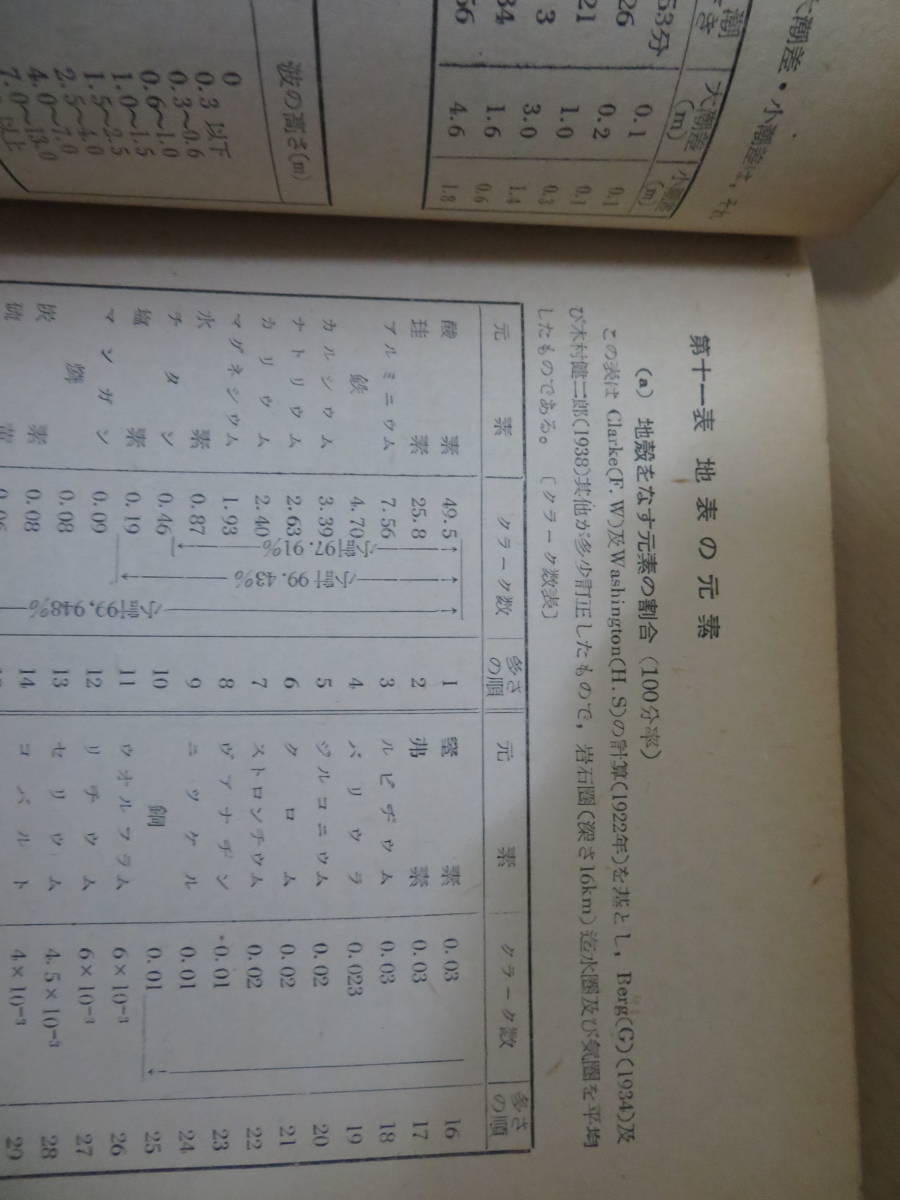 大潮差・小潮差は，それ
大潮差(m)
小潮差(m)
53分 0.1 0.1
26 0.2 0.1
21 1.0 0.3
3 3.0 1.4
34 1.6 0.6
56 4.6 1.8
波の高さ(m)
0
0.3 以下
0.3～0.6
0.6～1.0
1.0～1.5
1.5～2.5
2.5～4.0
4.0～7.0
7.0～13.0
以上
第十一表 地表の元素
(a) 地殻をなす元素の割合 (100分率)
この表は Clarke(F.W)及Washington(H.S)の計算(1922年)を基とし，Berg(G)(1934)及
び木村健二郎(1938)其他が多少訂正したもので，岩石圏(深さ16km)迄水圏及び気圏を平均
したものである。〔クラーク数表〕
元素 クラーク数 多さの順 元素 クラーク数 多さの順
酸素 49.5 1 窒素 0.03 16
珪素 25.8 2 弗素 0.03 17
アルミニウム 7.56 3 ルビヂウム 0.03 18
鉄 4.70 4 バリウラ 0.023 19
カルシウム 3.39 5 ジルコニウム 0.02 20
ナトリウム 2.63 6 クロム 0.02 21
カリウム 2.40 7 ストロンチウム 0.02 22
マグネシウム 1.93 8 ヴアナヂン 0.01 23
水素 0.87 9 ニツケル 0.01 24
チタン 0.46 10 銅 0.01 25
塩素 0.19 11 ウオルフラム 6×10⁻³ 26
マンガン 0.09 12 リチウム 6×10⁻³ 27
燐 0.08 13 セリウム 4.5×10⁻³ 28
炭素 0.08 14 コバルト 4×10⁻³ 29
硫黄 0.06
小計97.91%
小計99.43%
小計99.948%